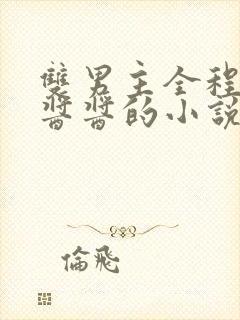 雙男主全程
醬醬的小説
倫飛